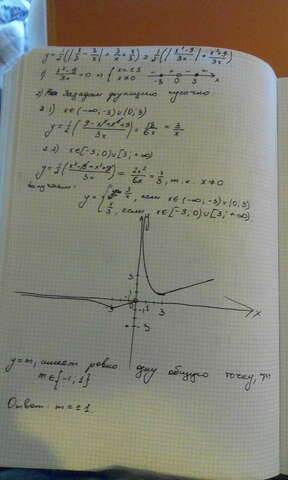 y = 1/2 (|x/3 - 3/x| + 3/x + x/3) = 1/2 (|x²-9/3x| + x²+9/3x)
1) x²-9/3x = 0 => { x = ±3 x ≠ 0 - + - + -3 0 3 x
2) Зададим функцию кусочно
2.1) x∈(-∞,-3)∪(0,3)
y = 1/2 (9-x²+x²+9/3x) = 18/6x = 3/x
2.2) x∈[-3,0)∪[3;+∞)
y = 1/2 (x²-9+x²+9/3x) = 2x²/6x = x/3, т.к. x≠0
Получаем:
y = { 3/x, если x∈(-∞,-3)∪(0,3)
x/3, если x∈[-3,0)∪[3;+∞)
y
3
1
-3 -1 1 3 x
-1
-3
y=m, имеет ровно одну общую точку,
m∈{-1,1}
Ответ: m=±1.